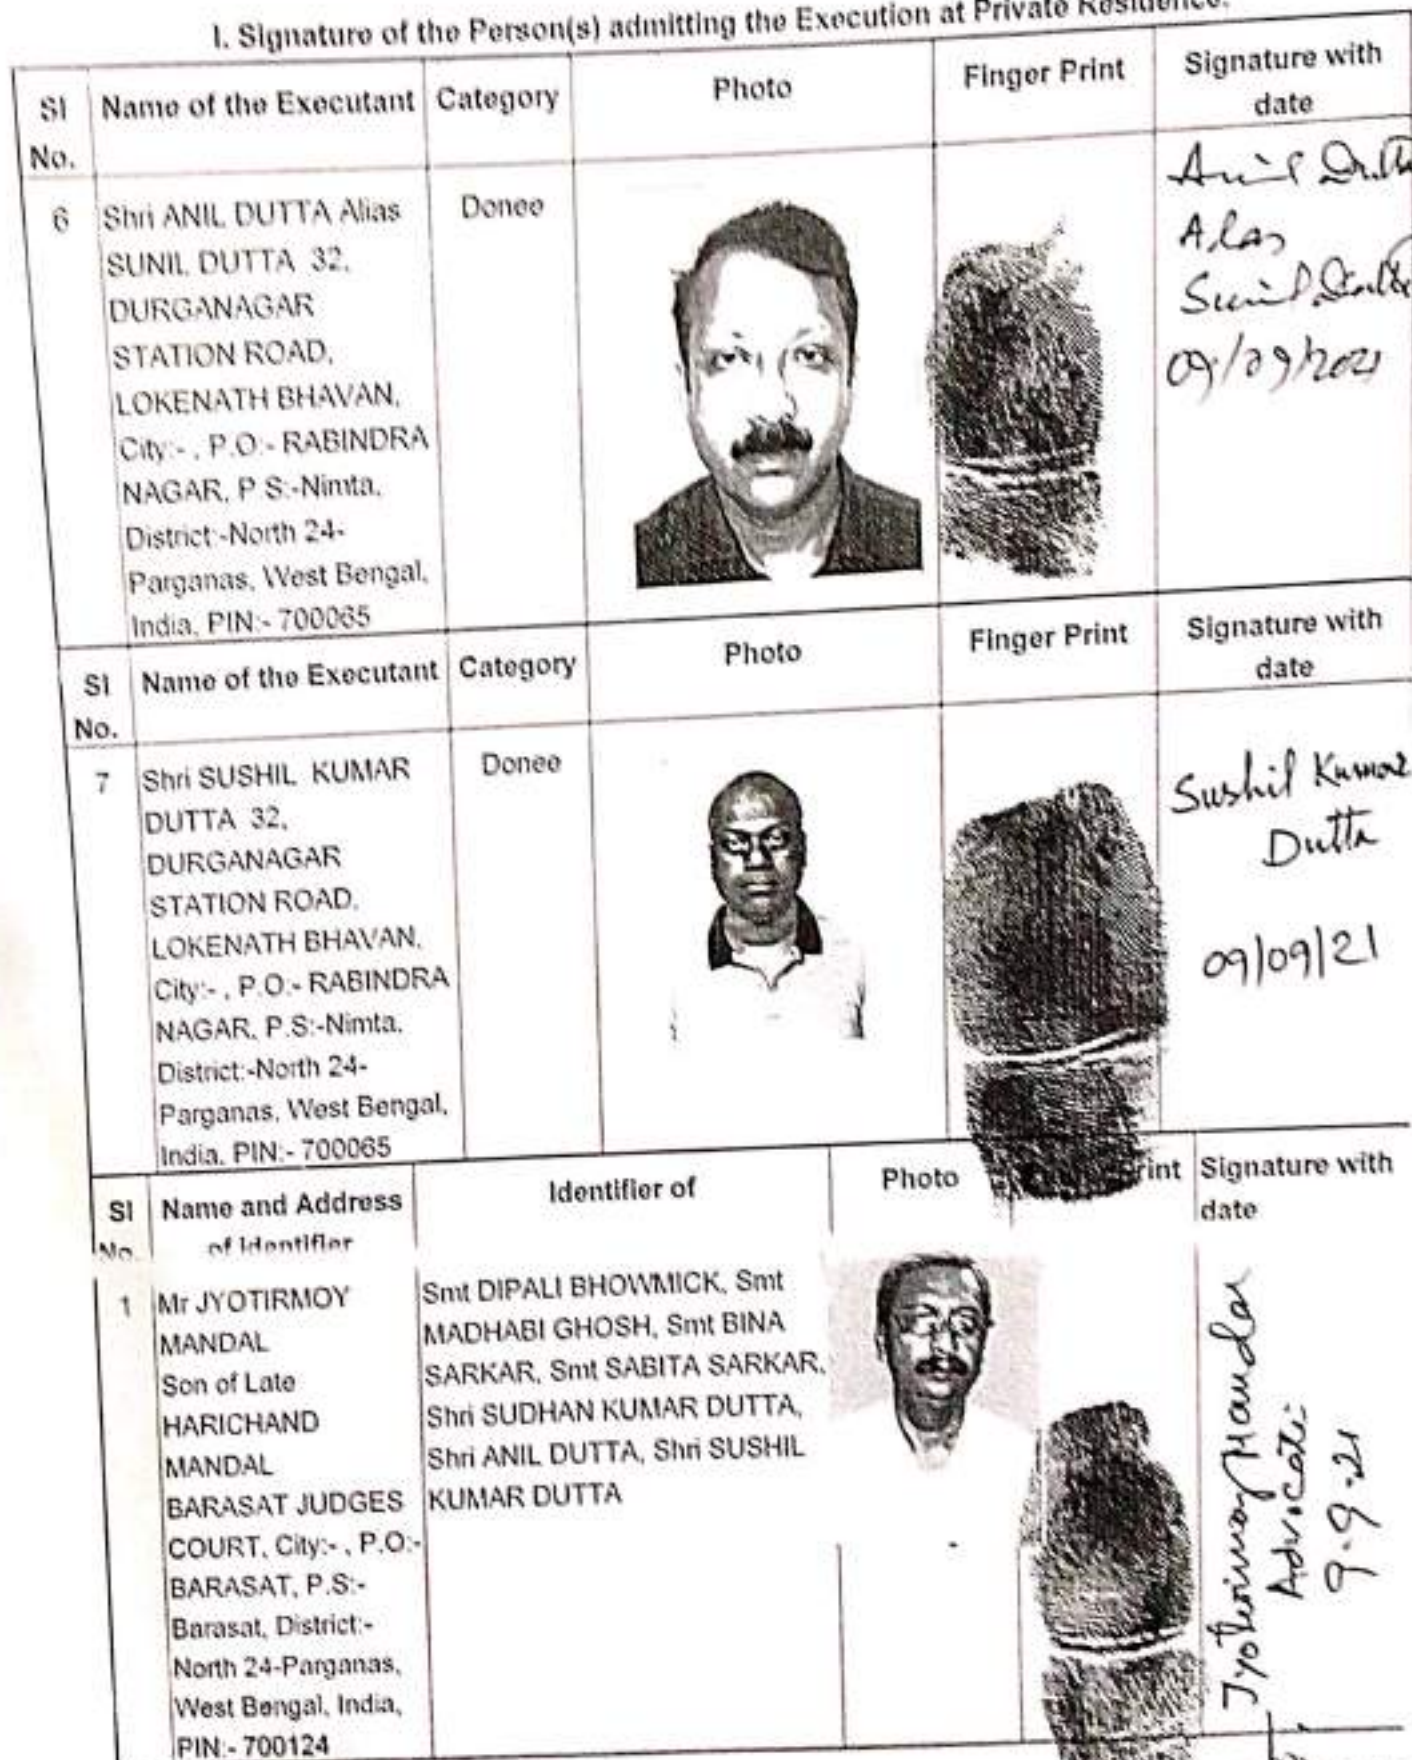 I. Signature of the Person(s) admitting the Execution at Private Residence.
Sl No. Name of the Executant Category Photo Finger Print Signature with date
6 Shri ANIL DUTTA Alias
SUNIL DUTTA 32,
DURGANAGAR
STATION ROAD,
LOKENATH BHAVAN,
City:- , P.O:- RABINDRA
NAGAR, P.S:-Nimta,
District:-North 24-
Parganas, West Bengal,
India, PIN:- 700065
Donee
Anil Dutta
Alas
Sunil Dutta
09/09/2021
Sl No. Name of the Executant Category Photo Finger Print Signature with date
7 Shri SUSHIL KUMAR
DUTTA 32,
DURGANAGAR
STATION ROAD,
LOKENATH BHAVAN,
City:- , P.O:- RABINDRA
NAGAR, P.S:-Nimta,
District:-North 24-
Parganas, West Bengal,
India, PIN:- 700065
Donee
Sushil Kumar
Dutta
09/09/21
Sl No. Name and Address of Identifier Identifier of Photo rint Signature with date
1 Mr JYOTIRMOY
MANDAL
Son of Late
HARICHAND
MANDAL
BARASAT JUDGES
COURT, City:- , P.O:-
BARASAT, P.S:-
Barasat, District:-
North 24-Parganas,
West Bengal, India,
PIN:- 700124
Smt DIPALI BHOWMICK, Smt
MADHABI GHOSH, Smt BINA
SARKAR, Smt SABITA SARKAR,
Shri SUDHAN KUMAR DUTTA,
Shri ANIL DUTTA, Shri SUSHIL
KUMAR DUTTA
Jyotirmoy Mandal
Advocate
9.9.21